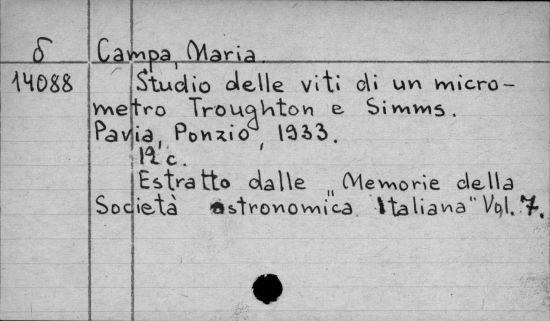 δ Campa, Maria.
14088 Studio delle viti di un micro-
metro Troughton e Simms.
Pavia, Ponzio, 1933.
12 c.
Estratto dalle „Memorie della
Società astronomica Italiana" Vol. 7.